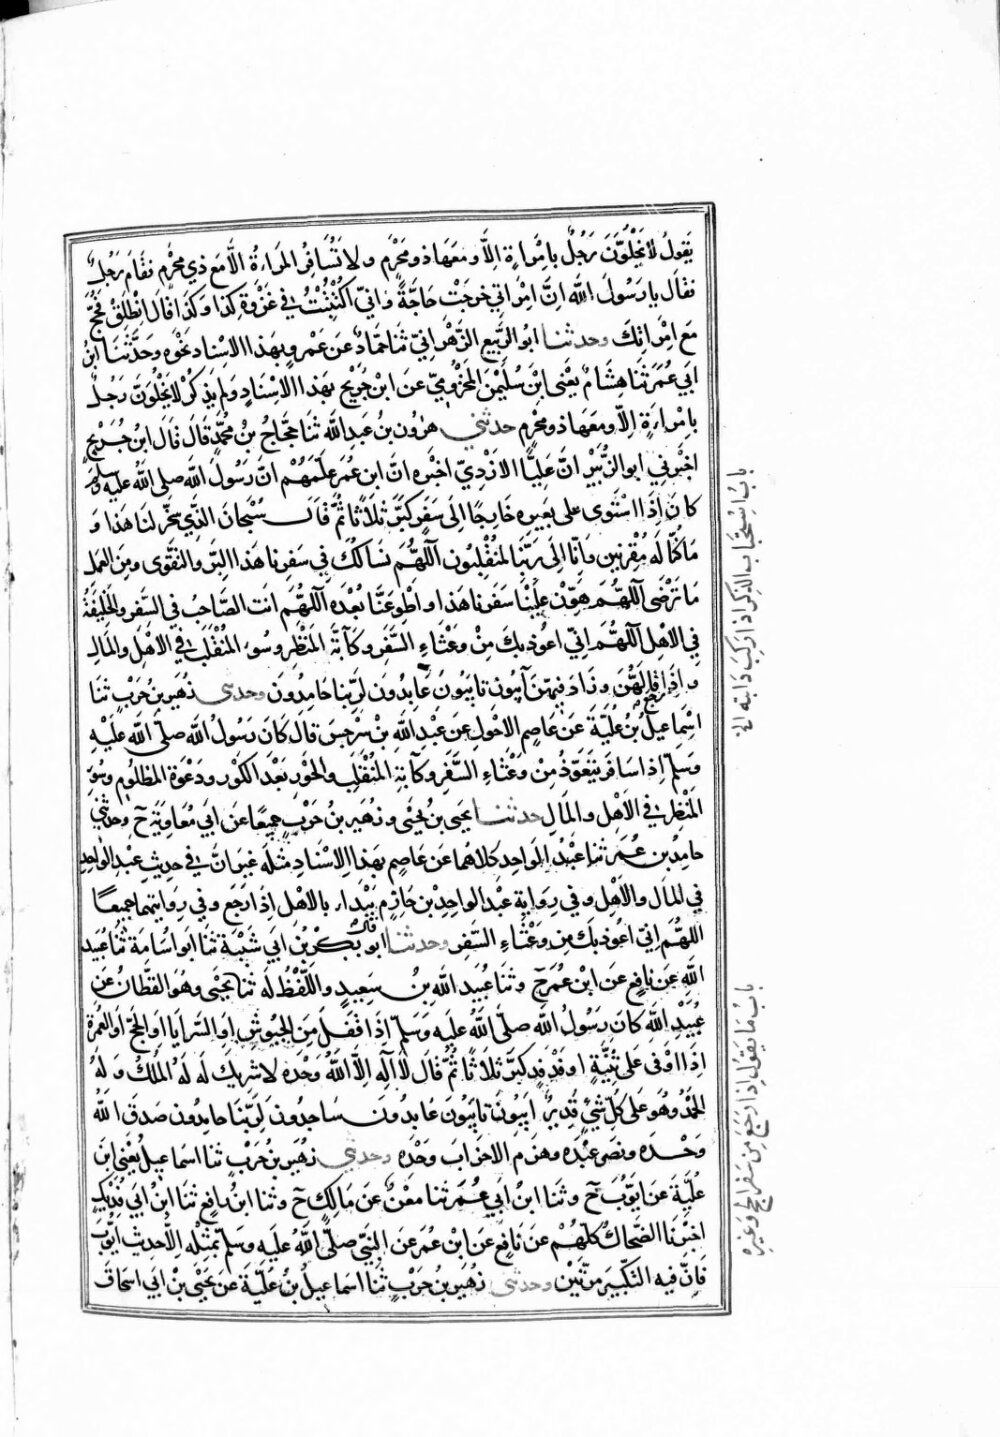 يَقُولُ لَا يَخْلُوَنَّ رَجُلٌ بِامْرَاَةٍ اِلَّا وَمَعَهَا ذُو مَحْرَمٍ وَلَا تُسَافِرُ المَرْاَةُ اِلَّا مَعَ ذِي مَحْرَمٍ فَقَامَ رَجُلٌ
فَقَالَ يَا رَسُولَ اللّٰهِ اِنَّ امْرَاَتِي خَرَجَتْ حَاجَّةً وَاِنِّي اكْتُتِبْتُ فِي غَزْوَةِ كَذَا وَكَذَا قَالَ انْطَلِقْ فَحُجَّ
مَعَ امْرَاَتِكَ وحدثنا ابو الرَّبِيعِ الزَّهْرَانِيُّ ثَنَا حَمَّادٌ عَنْ عَمْرٍو بِهَذَا الاِسْنَادِ نَحْوَهُ وَحَدَّثَنَا ابْنُ
اَبِي عُمَرَ ثَنَا هِشَامٌ يَعْنِي ابْنَ سُلَيْمٰنَ المَخْزُومِيَّ عَنَ ابْنِ جُرَيْجٍ بِهَذَا الاِسْنَادِ وَلَمْ يَذْكُرْ لَا يَخْلُوَنَّ رَجُلٌ
بِامْرَاَةٍ اِلَّا وَمَعَهَا ذُو مَحْرَمٍ حدثني هٰرُونُ بْنُ عَبْدِ اللّٰهِ ثَنَا حَجَّاجُ بْنُ مُحَمَّدٍ قَالَ قَالَ ابْنُ جُرَيْجٍ
اَخْبَرَنِي ابو الزُّبَيْرِ اَنَّ عَلِيًّا الاَزْدِيَّ اَخْبَرَهُ اَنَّ ابْنَ عُمَرَ عَلَّمَهُمْ اَنَّ رَسُولَ اللّٰهِ صلى اللّٰهُ عليه وسلم
كَانَ اِذَا اسْتَوَى عَلَى بَعِيرِهِ خَارِجًا اِلَى سَفَرٍ كَبَّرَ ثَلَاثًا ثُمَّ قَالَ سُبْحَانَ الَّذِي سَخَّرَ لَنَا هَذَا وَ
مَا كُنَّا لَهُ مُقْرِنِينَ وَاِنَّا اِلَى رَبِّنَا لَمُنْقَلِبُونَ اَللّٰهُمَّ نَسْاَلُكَ فِي سَفَرِنَا هَذَا الْبِرَّ وَالتَّقْوَى وَمِنَ العَمَلِ
مَا تَرْضَى اَللّٰهُمَّ هَوِّنْ عَلَيْنَا سَفَرَنَا هَذَا وَاطْوِ عَنَّا بُعْدَهُ اَللّٰهُمَّ انت الصَّاحِبُ فِي السَّفَرِ وَالْخَلِيفَةُ
فِي الاَهْلِ اَللّٰهُمَّ اِنِّي اَعُوذُ بِكَ مِنْ وَعْثَاءِ السَّفَرِ وَكَآبَةِ المَنْظَرِ وَسُوءِ المُنْقَلَبِ فِي الاَهْلِ وَالمَالِ
وَاِذَا رجع قَالَهُنَّ وَزَادَ فِيهِنَّ آيِبُونَ تَايِبُونَ عَابِدُونَ لِرَبِّنَا حَامِدُونَ وحدثني زُهَيْرُ بْنُ حَرْبٍ ثَنَا
اِسْمَاعِيلُ بْنُ عُلَيَّةَ عَنْ عَاصِمٍ الاَحْوَلِ عَنْ عَبْدِ اللّٰهِ بْنِ سَرْجِسَ قَالَ كَانَ رَسُولُ اللّٰهِ صلّى اللّٰهُ عَلَيْهِ
وَسَلَّمَ اِذَا سَافَرَ يَتَعَوَّذُ مِنْ وَعْثَاءِ السَّفَرِ وَكَآبَةِ المُنْقَلَبِ وَالحَوْرِ بَعْدَ الكَوْرِ وَدَعْوَةِ المَظْلُومِ وَسُوءِ
المَنْظَرِ فِي الاَهْلِ وَالمَالِ حدثنا يَحْيَى بْنُ يَحْيَى وَزُهَيْرُ بْنُ حَرْبٍ جَمِيعًا عَنْ اَبِي مُعَاوِيَةَ ح وحدثني
حَامِدُ بْنُ عُمَرَ ثَنَا عَبْدُ الوَاحِدِ كِلَاهُمَا عَنْ عَاصِمٍ بِهَذَا الاِسْنَادِ مِثْلَهُ غَيْرَ اَنَّ فِي حَدِيثِ عَبْدِ الوَاحِدِ
فِي المَالِ وَالاَهْلِ وَفِي رِوَايَةِ عَبْدِ الواحِدِ بْنِ خَازِمٍ قال يَبْدَاُ بِالاَهْلِ اِذَا رَجَعَ وَفِي رِوَايَتِهِمَا جَمِيعًا
اَللّٰهُمَّ اِنِّي اَعُوذُ بِكَ مِنْ وَعْثَاءِ السَّفَرِ وحدثنا ابو بَكْرِ بْنُ اَبِي شَيْبَةَ ثَنَا اَبُو اُسَامَةَ ثَنَا عُبَيْدُ
اللّٰهِ عَنْ نَافِعٍ عَنِ ابْنِ عُمَرَ ح وَثَنَا عُبَيْدُ اللّٰهِ بْنُ سَعِيدٍ وَاللَّفْظُ لَهُ ثَنَا يَحْيَى وَهُوَ القَطَّانُ عَنْ
عُبَيْدِ اللّٰهِ كَانَ رَسُولُ اللّٰهِ صلّى اللّٰهُ عَلَيْهِ وَسَلَّمَ اِذَا قَفَلَ مِنَ الجُيُوشِ اَوِ السَّرَايَا اَوِ الحَجِّ اَوِ العُمْرَةِ
اِذَا اَوْفَى عَلَى ثَنِيَّةٍ اَوْ فَدْفَدٍ كَبَّرَ ثَلَاثًا ثُمَّ قَالَ لَا اِلٰهَ اِلَّا اللّٰهُ وَحْدَهُ لَا شَرِيكَ لَهُ لَهُ المُلْكُ وَلَهُ
الحَمْدُ وَهُوَ عَلَى كُلِّ شَيْءٍ قَدِيرٌ آيِبُونَ تَايِبُونَ عَابِدُونَ سَاجِدُونَ لِرَبِّنَا حَامِدُونَ صَدَقَ اللّٰهُ
وَعْدَهُ وَنَصَرَ عَبْدَهُ وَهَزَمَ الاَحْزَابَ وَحْدَهُ وحدثني زُهَيْرُ بْنُ حَرْبٍ ثَنَا اسماعيلُ يَعْنِي ابْنَ
عُلَيَّةَ عَنْ اَيُّوبَ ح وَثَنَا ابْنُ اَبِي عُمَرَ ثَنَا مَعْنٌ عَنْ مَالِكٍ ح وَثَنَا ابْنُ رَافِعٍ ثَنَا ابْنُ اَبِي فُدَيْكٍ
اَخْبَرَنَا الضَّحَّاكُ كُلُّهُمْ عَنْ نَافِعٍ عَنِ ابْنِ عُمَرَ عَنِ النَّبِيِّ صلّى اللّٰهُ عَلَيْهِ وَسَلَّمَ بِمِثْلِهِ اِلَّا حَدِيثَ اَيُّوبَ
فَاِنَّ فِيهِ التَّكْبِيرَ مَرَّتَيْنِ وحدثني زُهَيْرُ بْنُ حَرْبٍ ثَنَا اسماعيلُ بْنُ عُلَيَّةَ عَنْ يَحْيَى بْنِ اَبِي اسْحَاقَ
بابُ اِسْتِحْبَابِ الذِّكْرِ اِذَا رَكِبَ دَابَّتَهُ الخ
بابُ مَا يَقُولُ اِذَا رَجَعَ مِنْ سَفَرِ الحَجِّ وَغَيْرِهِ